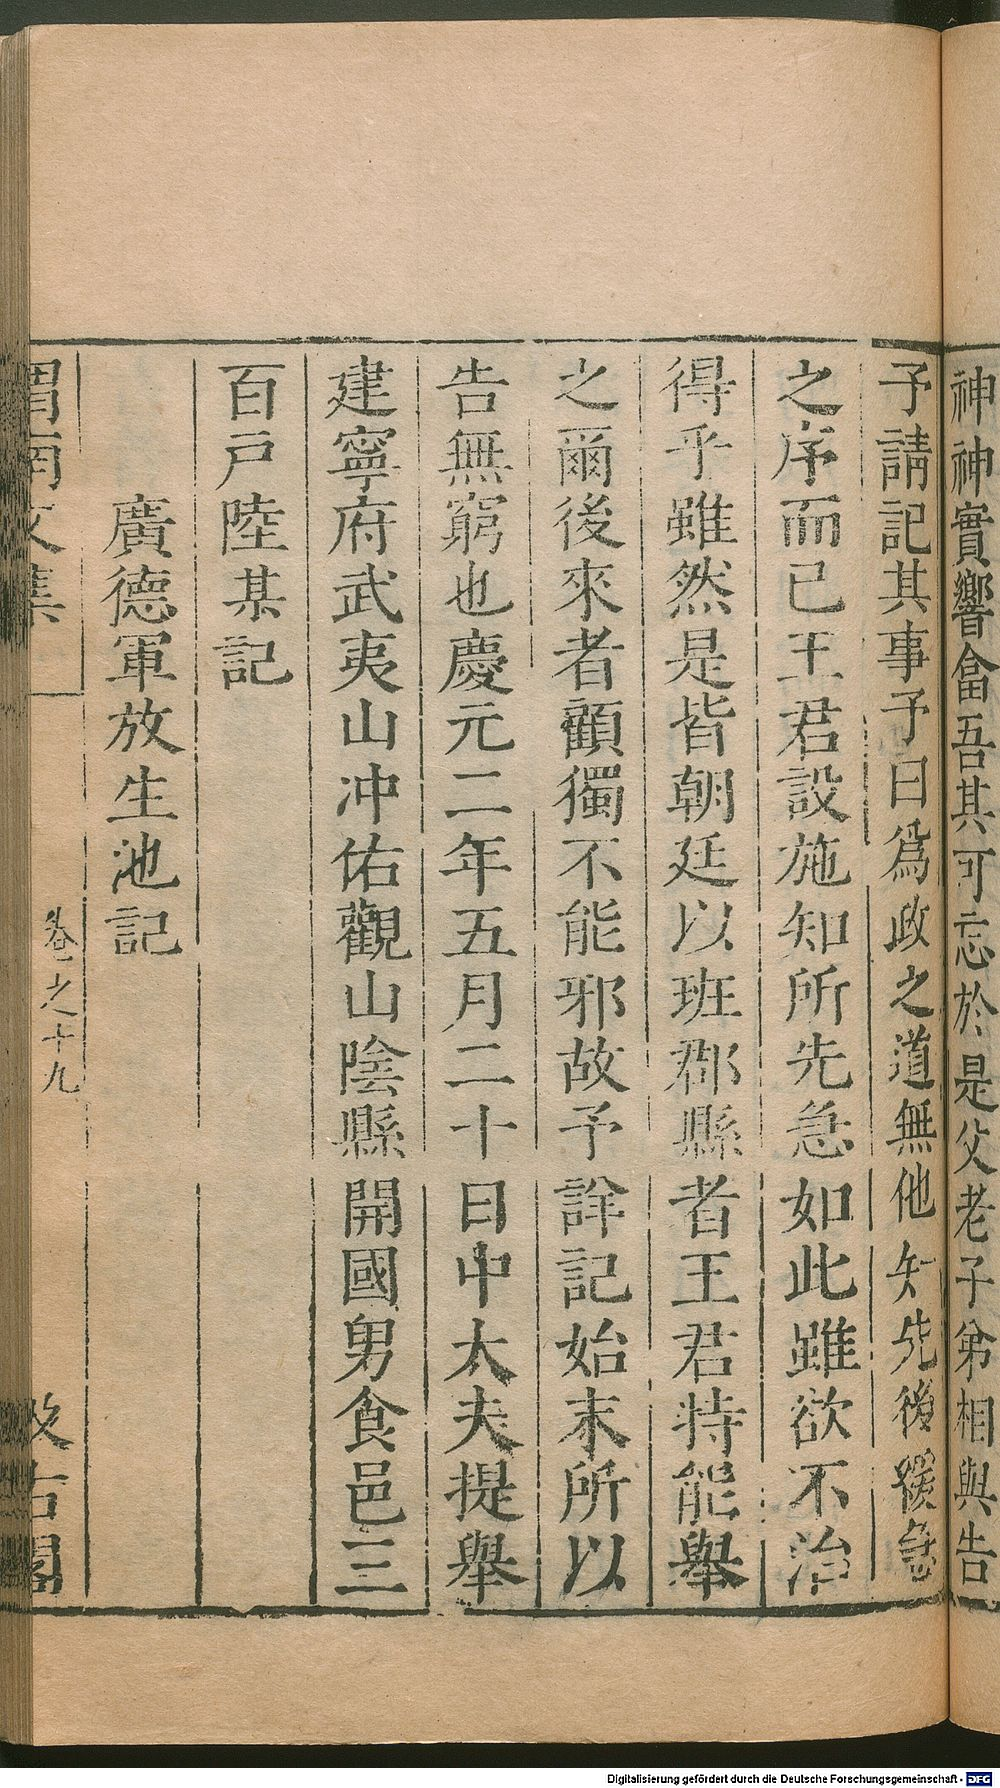 神神實響畣吾其可忘於是父老子弟相與告
予請記其事予曰爲政之道無他知先後緩急
之序而已王君設施知所先急如此雖欲不治
得乎雖然是皆朝廷以班郡縣者王君特能舉
之爾後來者顧獨不能邪故予詳記始末所以
告無窮也慶元二年五月二十日中大夫提舉
建寧府武夷山冲佑觀山陰縣開國男食邑三
百戶陸某記
廣德軍放生池記
渭南文集
卷之十九
汲古閣
Digitalisierung gefördert durch die Deutsche Forschungsgemeinschaft - DFG